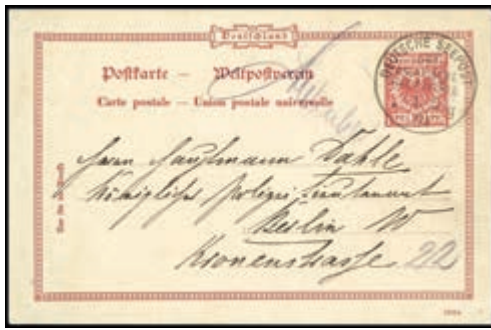 Deutschland
Postkarte — Weltpostverein
Carte postale — Union postale universelle
DEUTSCHE SEEPOST
Herrn Hauptmann Dahle
Königlicher Polizei Lieutenant
Berlin W
Kronenstrasse 22